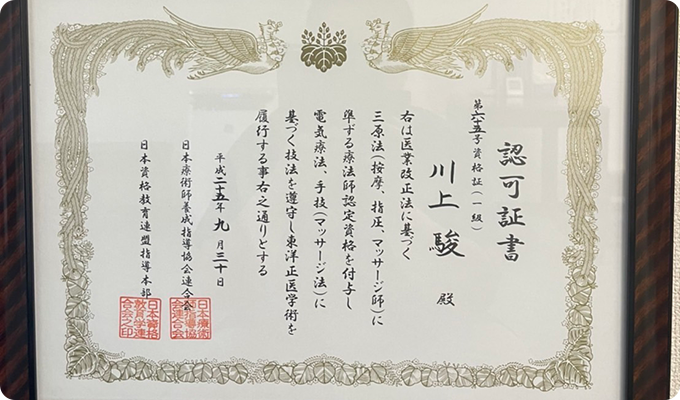 認可証書
第六十五号資格証(一級)
川上駿 殿
右は医業改正法に基づく
三原法(按摩、指圧、マッサージ師)に
準ずる療法師認定資格を付与し
電気療法、手技(マッサージ法)に
基づく技法を遵守し東洋正医学術を
履行する事右之通りとする
平成二十五年九月三十日
日本療術師養成指導協会連合会
日本資格教育連盟指導本部